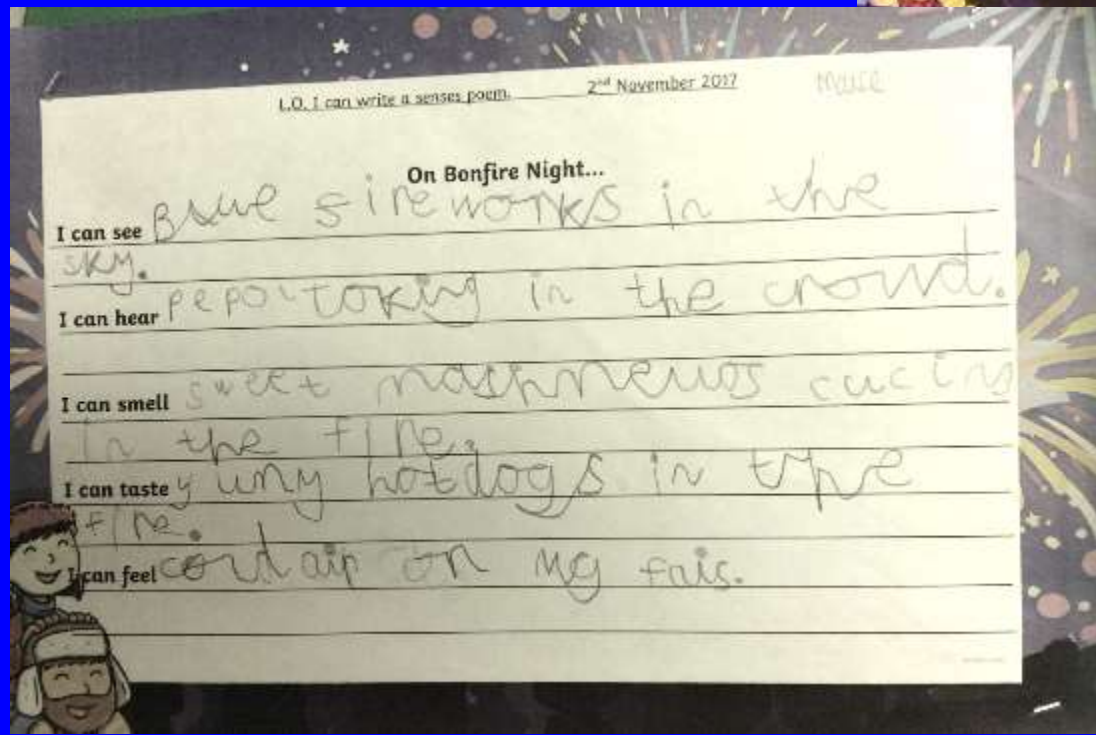 L.O. I can write a senses poem. 2nd November 2017
On Bonfire Night...
I can see Blue fireworks in the
sky.
I can hear pepol toking in the crowd.
I can smell sweet mashmellos cucing
in the fire.
I can taste yumy hotdogs in the
fire.
I can feel cord air on my fais.